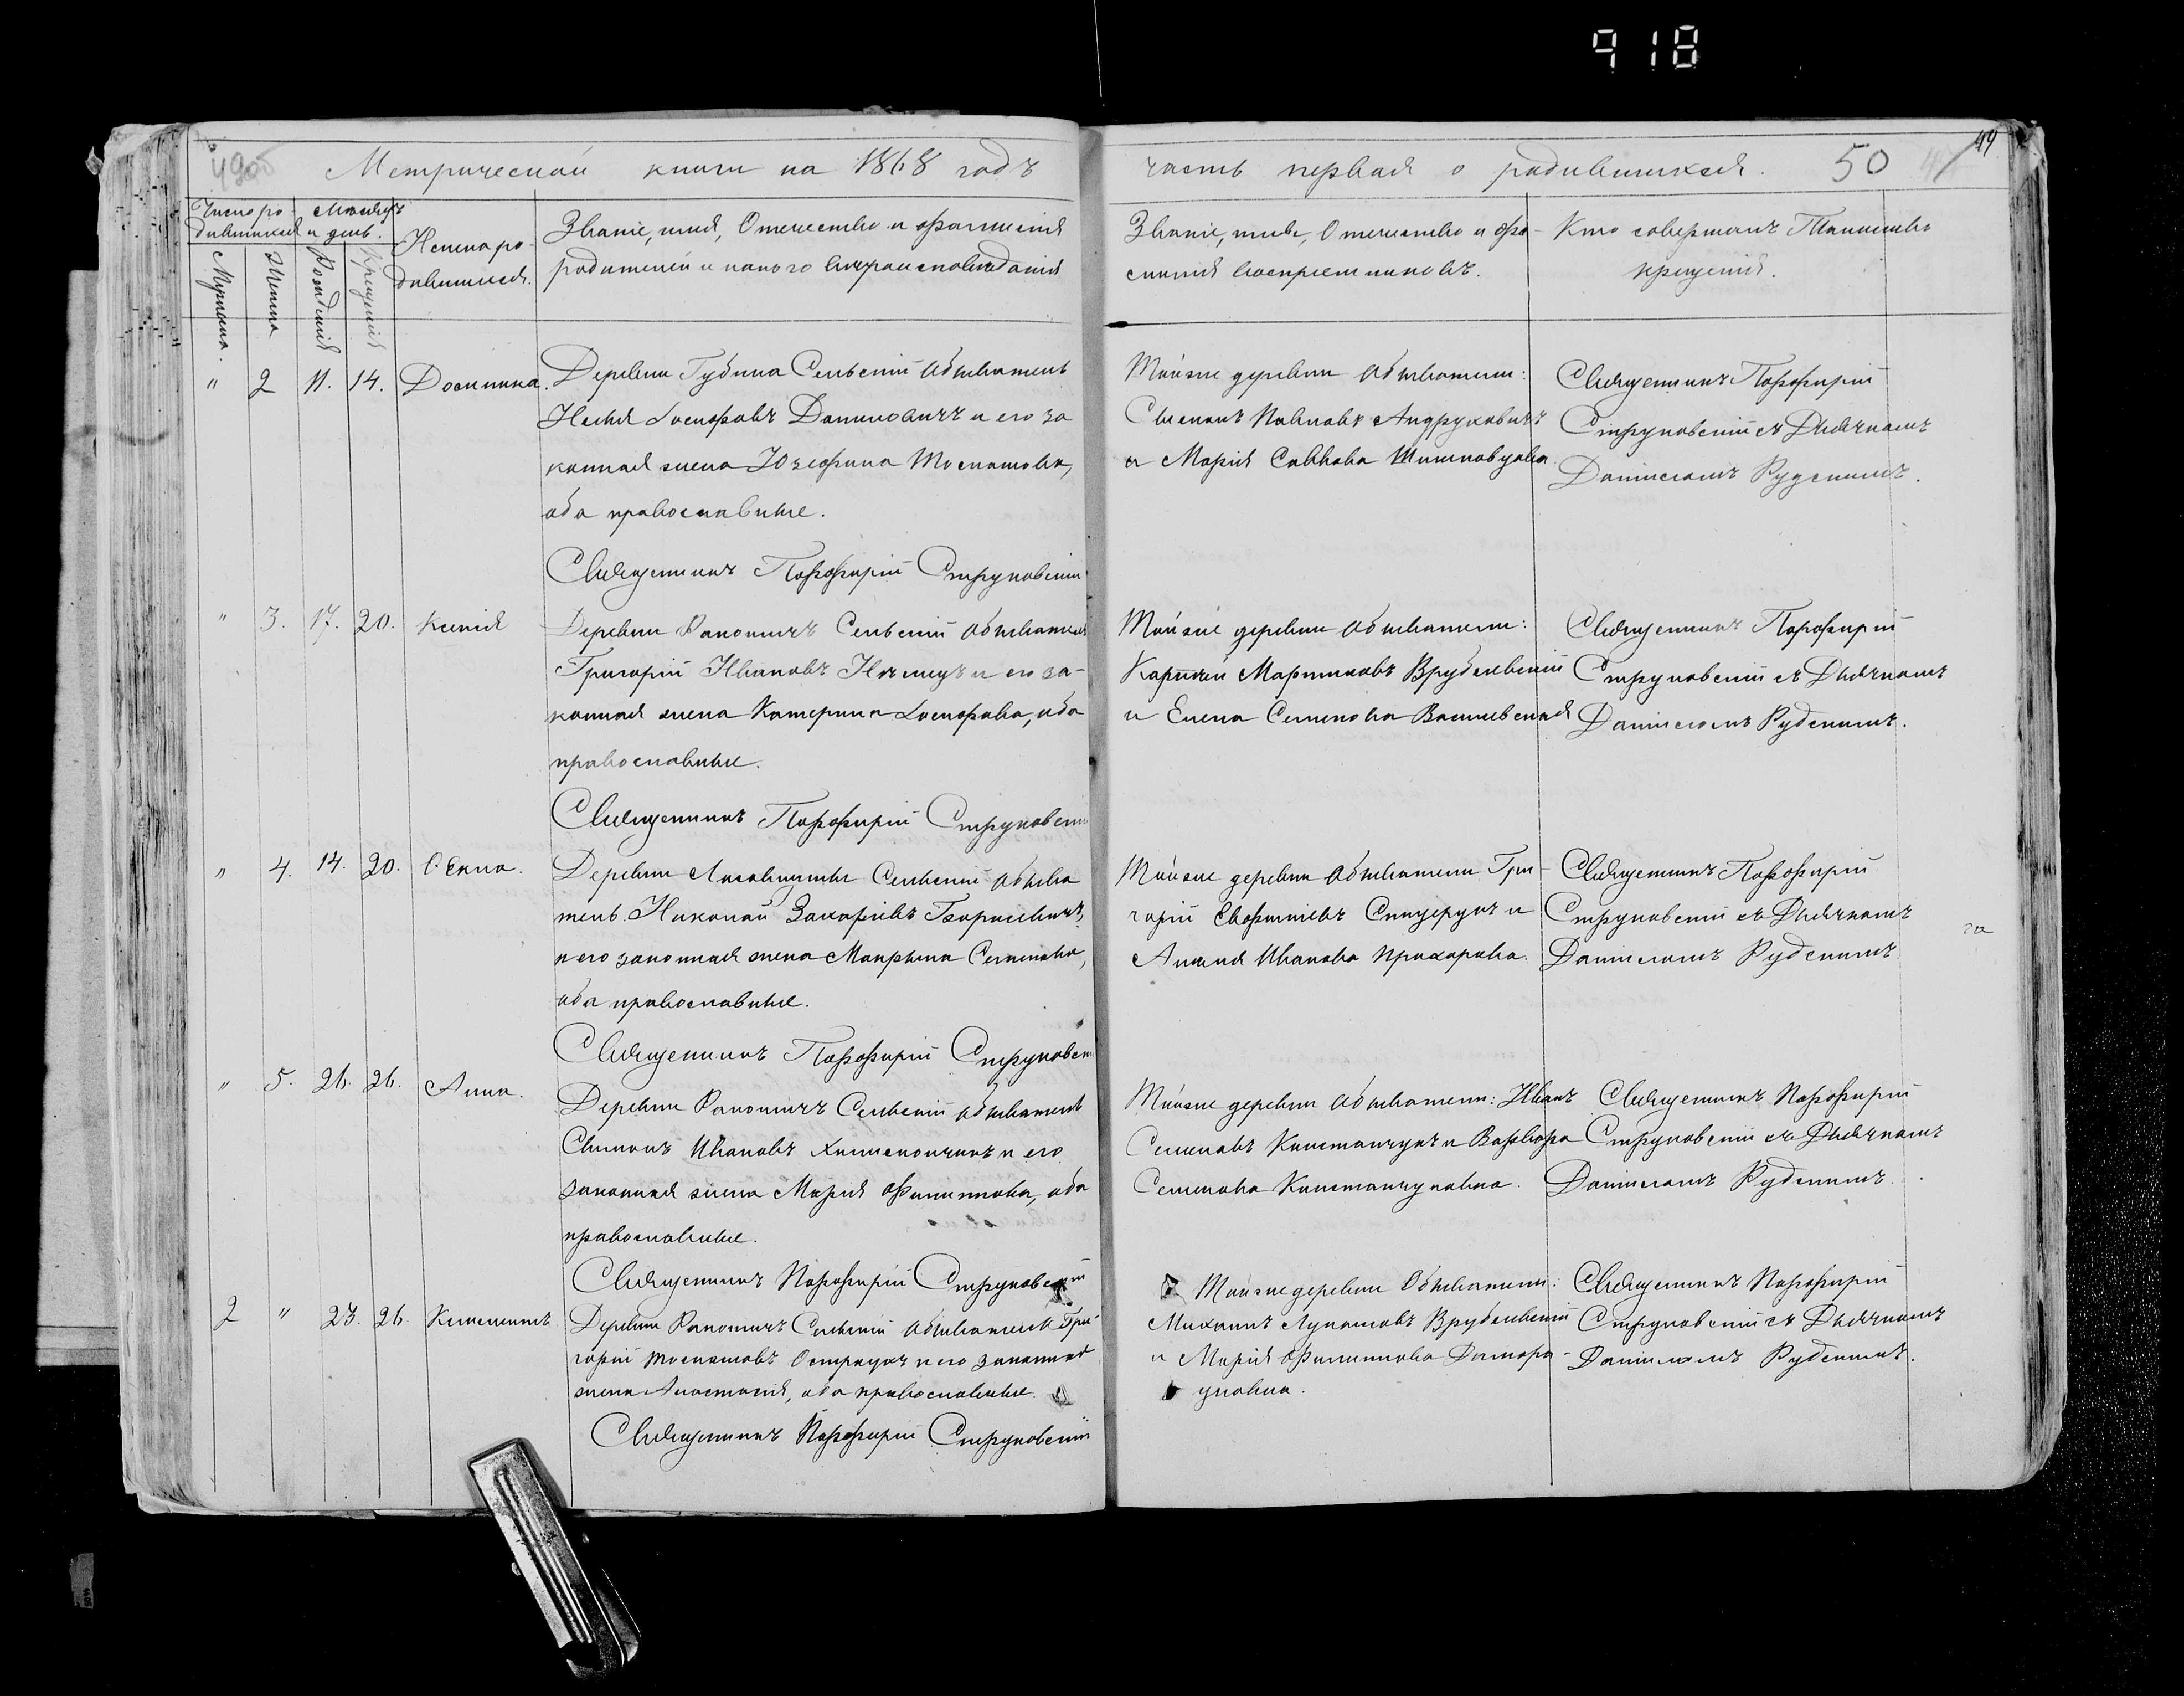 918
49об Метрической книги на 1868 годъ
часть первая о родившихся. 50 49
Число ро-
дившихся
Мѣсяцъ
и день.
Мужска.
Женска
Рожденія
Крещенія
Имена ро-
дившихся.
Званіе, имя, Отечество и фамилія
родителей и какого вѣроисповѣданія
Званіе, имя, Отечество и фа-
милія воспріемниковъ.
Кто совершалъ Таинство
крещенія.
" 2 11. 14. Доминика.
Деревни Губина Сельскій обыватель
Илья Іосифовъ Даниловичъ и его за
конная жена Юзефина Игнатова,
оба православные.
Священникъ Порфирій Струковскій
Тойже деревни обыватели:
Симонъ Павловъ Андруховичъ
и Марія Саввова
Священникъ Порфирій
Струковскій съ Дьячкомъ
Даніиломъ Рудскимъ.
" 3. 17. 20. Ксенія
Деревни Сельскій обыватель
Григорій Ивановъ Нѣмецъ и его за-
конная жена Катерина Іосифова, оба
православные.
Священникъ Порфирій Струковскій
Тойже деревни обыватели:
Мартиновъ Врублевскій
и Елена Семенова Василевская
Священникъ Порфирій
Струковскій съ Дьячкомъ
Даніиломъ Рудскимъ.
" 4. 14. 20.
Деревни Сельскій обыва
тель Николай Захаріевъ Борисевичъ,
и его законная жена Макрина Семенова,
оба православные.
Священникъ Порфирій Струковскій
Тойже деревни обыватели Гри-
горій и
Иванова Прохорова.
Священникъ Порфирій
Струковскій съ Дьячкомъ
Даніиломъ Рудскимъ
" 5. 26. 26. Анна.
Деревни Сельскій обыватель
Симонъ Ивановъ и его
законная жена Марія Филиппова, оба
православные.
Священникъ Порфирій Струковскій
Тойже деревни обыватели: Иванъ
Семеновъ и Варвара
Семенова
Священникъ Порфирій
Струковскій съ Дьячкомъ
Даніиломъ Рудскимъ.
2 " 23. 26. Климентъ
Деревни Сельскій обыватель Гри-
горій Игнатовъ и его законная
жена Анастасія, оба православные.
Священникъ Порфирій Струковскій
Тойже деревни Обыватели:
Михаилъ Лукашовъ Врублевскій
и Марія Филиппова
Священникъ Порфирій
Струковскій съ Дьячкомъ
Даніиломъ Рудскимъ.